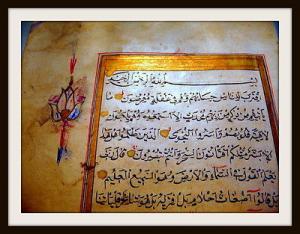 بسم الله الرحمن الرحيم
اقترب للناس حسابهم وهم في غفلة معرضون ما
يأتيهم من ذكر من ربهم محدث الا استمعوه وهم يلعبون
لاهية قلوبهم واسروا النجوى الذين ظلموا هل هذا
الا بشر مثلكم افتأتون السحر وانتم تبصرون قال ربي
يعلم القول في السماء والارض وهو السميع العليم
بل قالوا اضغاث احلام بل افتريه بل هو شاعر فليأتنا